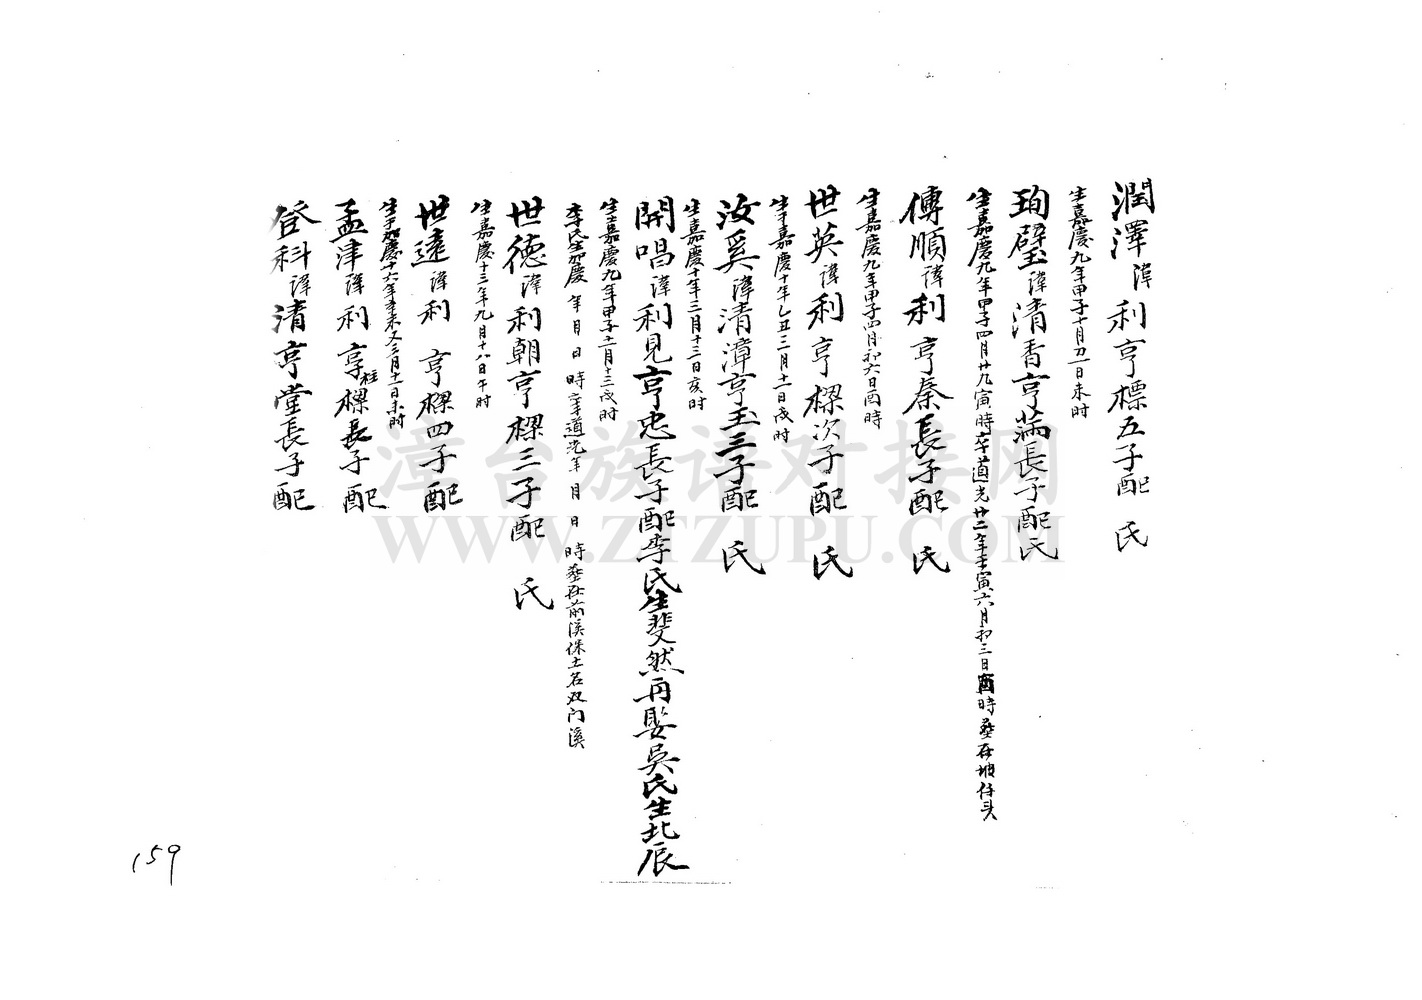 潤澤諱利亨標五子配 氏
生嘉慶九年甲子十月初一日未时
珣璧諱清香亨滿長子配氏
生嘉慶九年甲子四月廿九寅時卒道光廿二年壬寅六月初三日酉時葬在坡仔头
傅順諱利亨秦長子配 氏
生嘉慶九年甲子四月初六日酉時
世英諱利亨樑次子配 氏
生于嘉慶十年乙丑三月十一日戌时
汝奚諱清漳亨玉三子配 氏
生嘉慶十年三月十三日亥时
開唱諱利見亨忠長子配李氏生斐然再娶吳氏生北辰
生嘉慶九年甲子十一月十三戌时
李氏生嘉慶 年 月 日 時卒道光年 月 日 時葬在前溪保土名双门溪
世德諱利朝亨樑三子配 氏
生嘉慶十三年九月十八日午时
世遠諱利 亨樑四子配
生于嘉慶十六年辛未又三月十一日未时
孟津諱利亨桂樑長子配
登科諱清亨堂長子配
漳台族谱对接网
WWW.ZTZUPU.COM
159